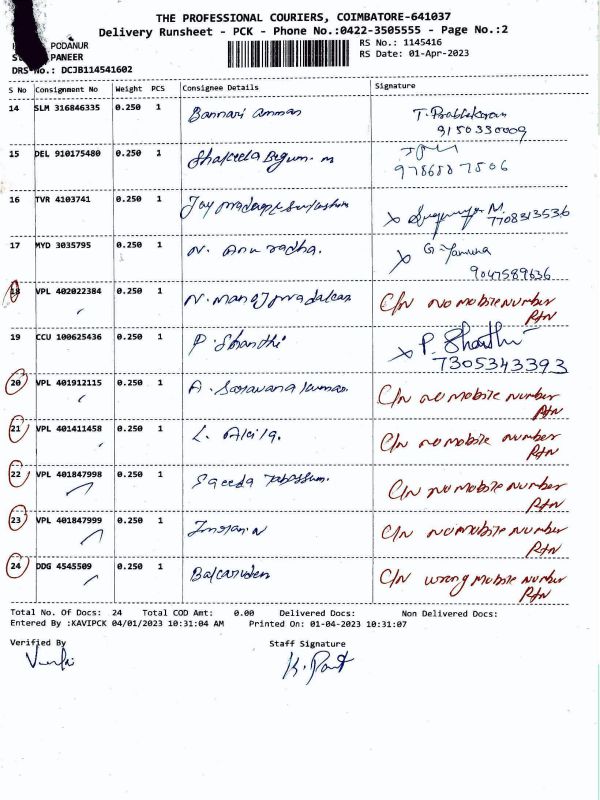 THE PROFESSIONAL COURIERS, COIMBATORE-641037
Delivery Runsheet - PCK - Phone No.:0422-3505555 - Page No.:2
PODANUR
RS No.: 1145416
PANEER
RS Date: 01-Apr-2023
DRS No.: DCJB114541602
S No Consignment No Weight PCS Consignee Details Signature
14 SLM 316846335 0.250 1 Bannari amman T. Prabhakaran
9150330009
15 DEL 910175480 0.250 1 Shakeela Begum. m
9786887806
16 TVR 4103741 0.250 1 x M.
7708313536
17 MYD 3035795 0.250 1 N. Anuradha. x G. Yamuna
9047589636
18 VPL 402022384 0.250 1 N. C/N no mobile number
Rtn
19 CCU 100625436 0.250 1 P. Shandhi x P. Shanthi
7305343393
20 VPL 401912115 0.250 1 A. Saravana kumar. C/N no mobile number
Rtn
21 VPL 401411458 0.250 1 L. C/N no mobile number
Rtn
22 VPL 401847998 0.250 1 Saeeda Tabassum. C/N no mobile number
Rtn
23 VPL 401847999 0.250 1 Imran N C/N no mobile number
Rtn
24 DDG 4545509 0.250 1 C/N wrong mobile number
Rtn
Total No. Of Docs: 24 Total COD Amt: 0.00 Delivered Docs: Non Delivered Docs:
Entered By :KAVIPCK 04/01/2023 10:31:04 AM Printed On: 01-04-2023 10:31:07
Verified By Staff Signature